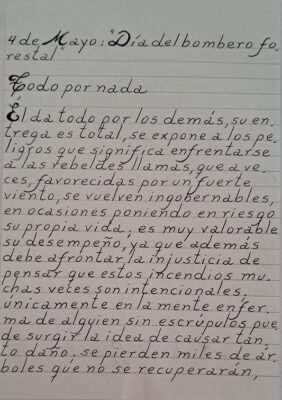 4 de Mayo: "Día del bombero fo.
restal"
Todo por nada
Él da todo por los demás, su en.
trega es total, se expone a los pe.
ligros que significa enfrentarse
a las rebeldes llamas, que a ve.
ces, favorecidas por un fuerte
viento, se vuelven ingobernables,
en ocasiones poniendo en riesgo
su propia vida; es muy valorable
su desempeño, ya que además
debe afrontar la injusticia de
pensar que estos incendios mu.
chas veces son intencionales.
únicamente en la mente enfer.
ma de alguien sin escrúpulos pue.
de surgir la idea de causar tan.
to daño; se pierden miles de ár.
boles que no se recuperarán,